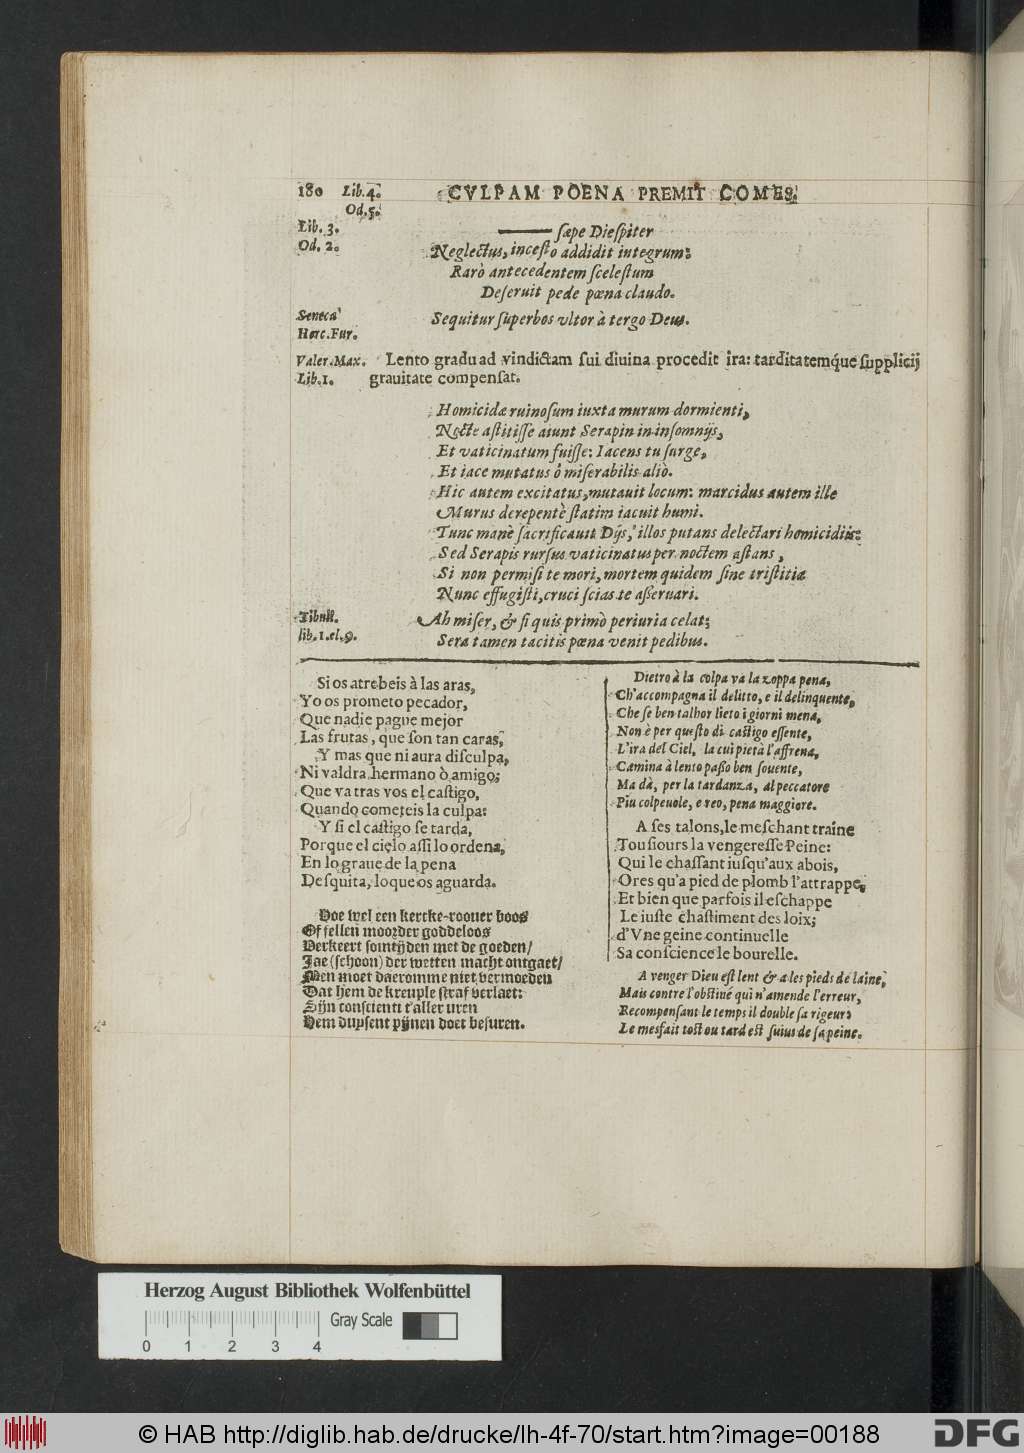 180 Lib. 4. CVLPAM POENA PREMIT COMES.
Od. 5.
Lib. 3. ——— ſæpe Dieſpiter
Od. 2. Neglectus, inceſto addidit integrum:
Rarò antecedentem ſceleſtum
Deſeruit pede pœna claudo.
Seneca Sequitur ſuperbos vltor à tergo Deus.
Herc. Fur.
Valer. Max. Lento gradu ad vindictam ſui diuina procedit ira: tarditatemq́ue ſupplicij
Lib. 1. grauitate compenſat.
Homicidæ ruinoſum iuxta murum dormienti,
Nocte aſtitiſſe aiunt Serapin in inſomnijs,
Et vaticinatum fuiſſe: Iacens tu ſurge,
Et iace mutatus ô miſerabilis aliò.
Hic autem excitatus, mutauit locum: marcidus autem ille
Murus derepentè ſtatim iacuit humi.
Tunc manè ſacrificauit Dijs, illos putans delectari homicidiis:
Sed Serapis rurſus vaticinatus per noctem aſtans,
Si non permiſi te mori, mortem quidem ſine triſtitia
Nunc effugiſti, cruci ſcias te aſſeruari.
Tibull. Ah miſer, & ſi quis primò periuria celat;
lib. 1. el. 9. Sera tamen tacitis pœna venit pedibus.
Si os atrebeis à las aras,
Yo os prometo pecador,
Que nadie pague mejor
Las frutas, que ſon tan caras,
Y mas que ni aura diſculpa,
Ni valdra hermano ò amigo;
Que va tras vos el caſtigo,
Quando cometeis la culpa:
Y ſi el caſtigo ſe tarda,
Porque el cielo aſſi lo ordena,
En lo graue de la pena
Deſquita, lo que os aguarda.
Hoe wel een kercke-roover boos
Of fellen moorder goddeloos
Verkeert ſomtijden met de goeden/
Jae (ſchoon) der wetten macht ontgaet/
Men moet daeromme niet vermoeden
Dat hem de kreuple ſtraf verlaet:
Sijn conſcienti t'aller uren
Hem duyſent pijnen doet beſuren.
Dietro à la colpa va la zoppa pena,
Ch'accompagna il delitto, e il delinquente,
Che ſe ben talhor lieto i giorni mena,
Non è per queſto di caſtigo eſſente,
L'ira del Ciel, la cui pietà l'affrena,
Camina à lento paſſo ben ſouente,
Ma dà, per la tardanza, al peccatore
Piu colpeuole, e reo, pena maggiore.
A ſes talons, le meſchant traine
Touſiours la vengereſſe Peine:
Qui le chaſſant iuſqu'aux abois,
Ores qu'a pied de plomb l'attrappe,
Et bien que parfois il eſchappe
Le iuſte chaſtiment des loix;
d'Vne geine continuelle
Sa conſcience le bourelle.
A venger Dieu eſt lent & a les pieds de laine,
Mais contre l'obſtiné qui n'amende l'erreur,
Recompenſant le temps il double ſa rigeur:
Le mesfait toſt ou tard eſt ſuiui de ſa peine.
Herzog August Bibliothek Wolfenbüttel
Gray Scale
0 1 2 3 4
© HAB http://diglib.hab.de/drucke/lh-4f-70/start.htm?image=00188
DFG